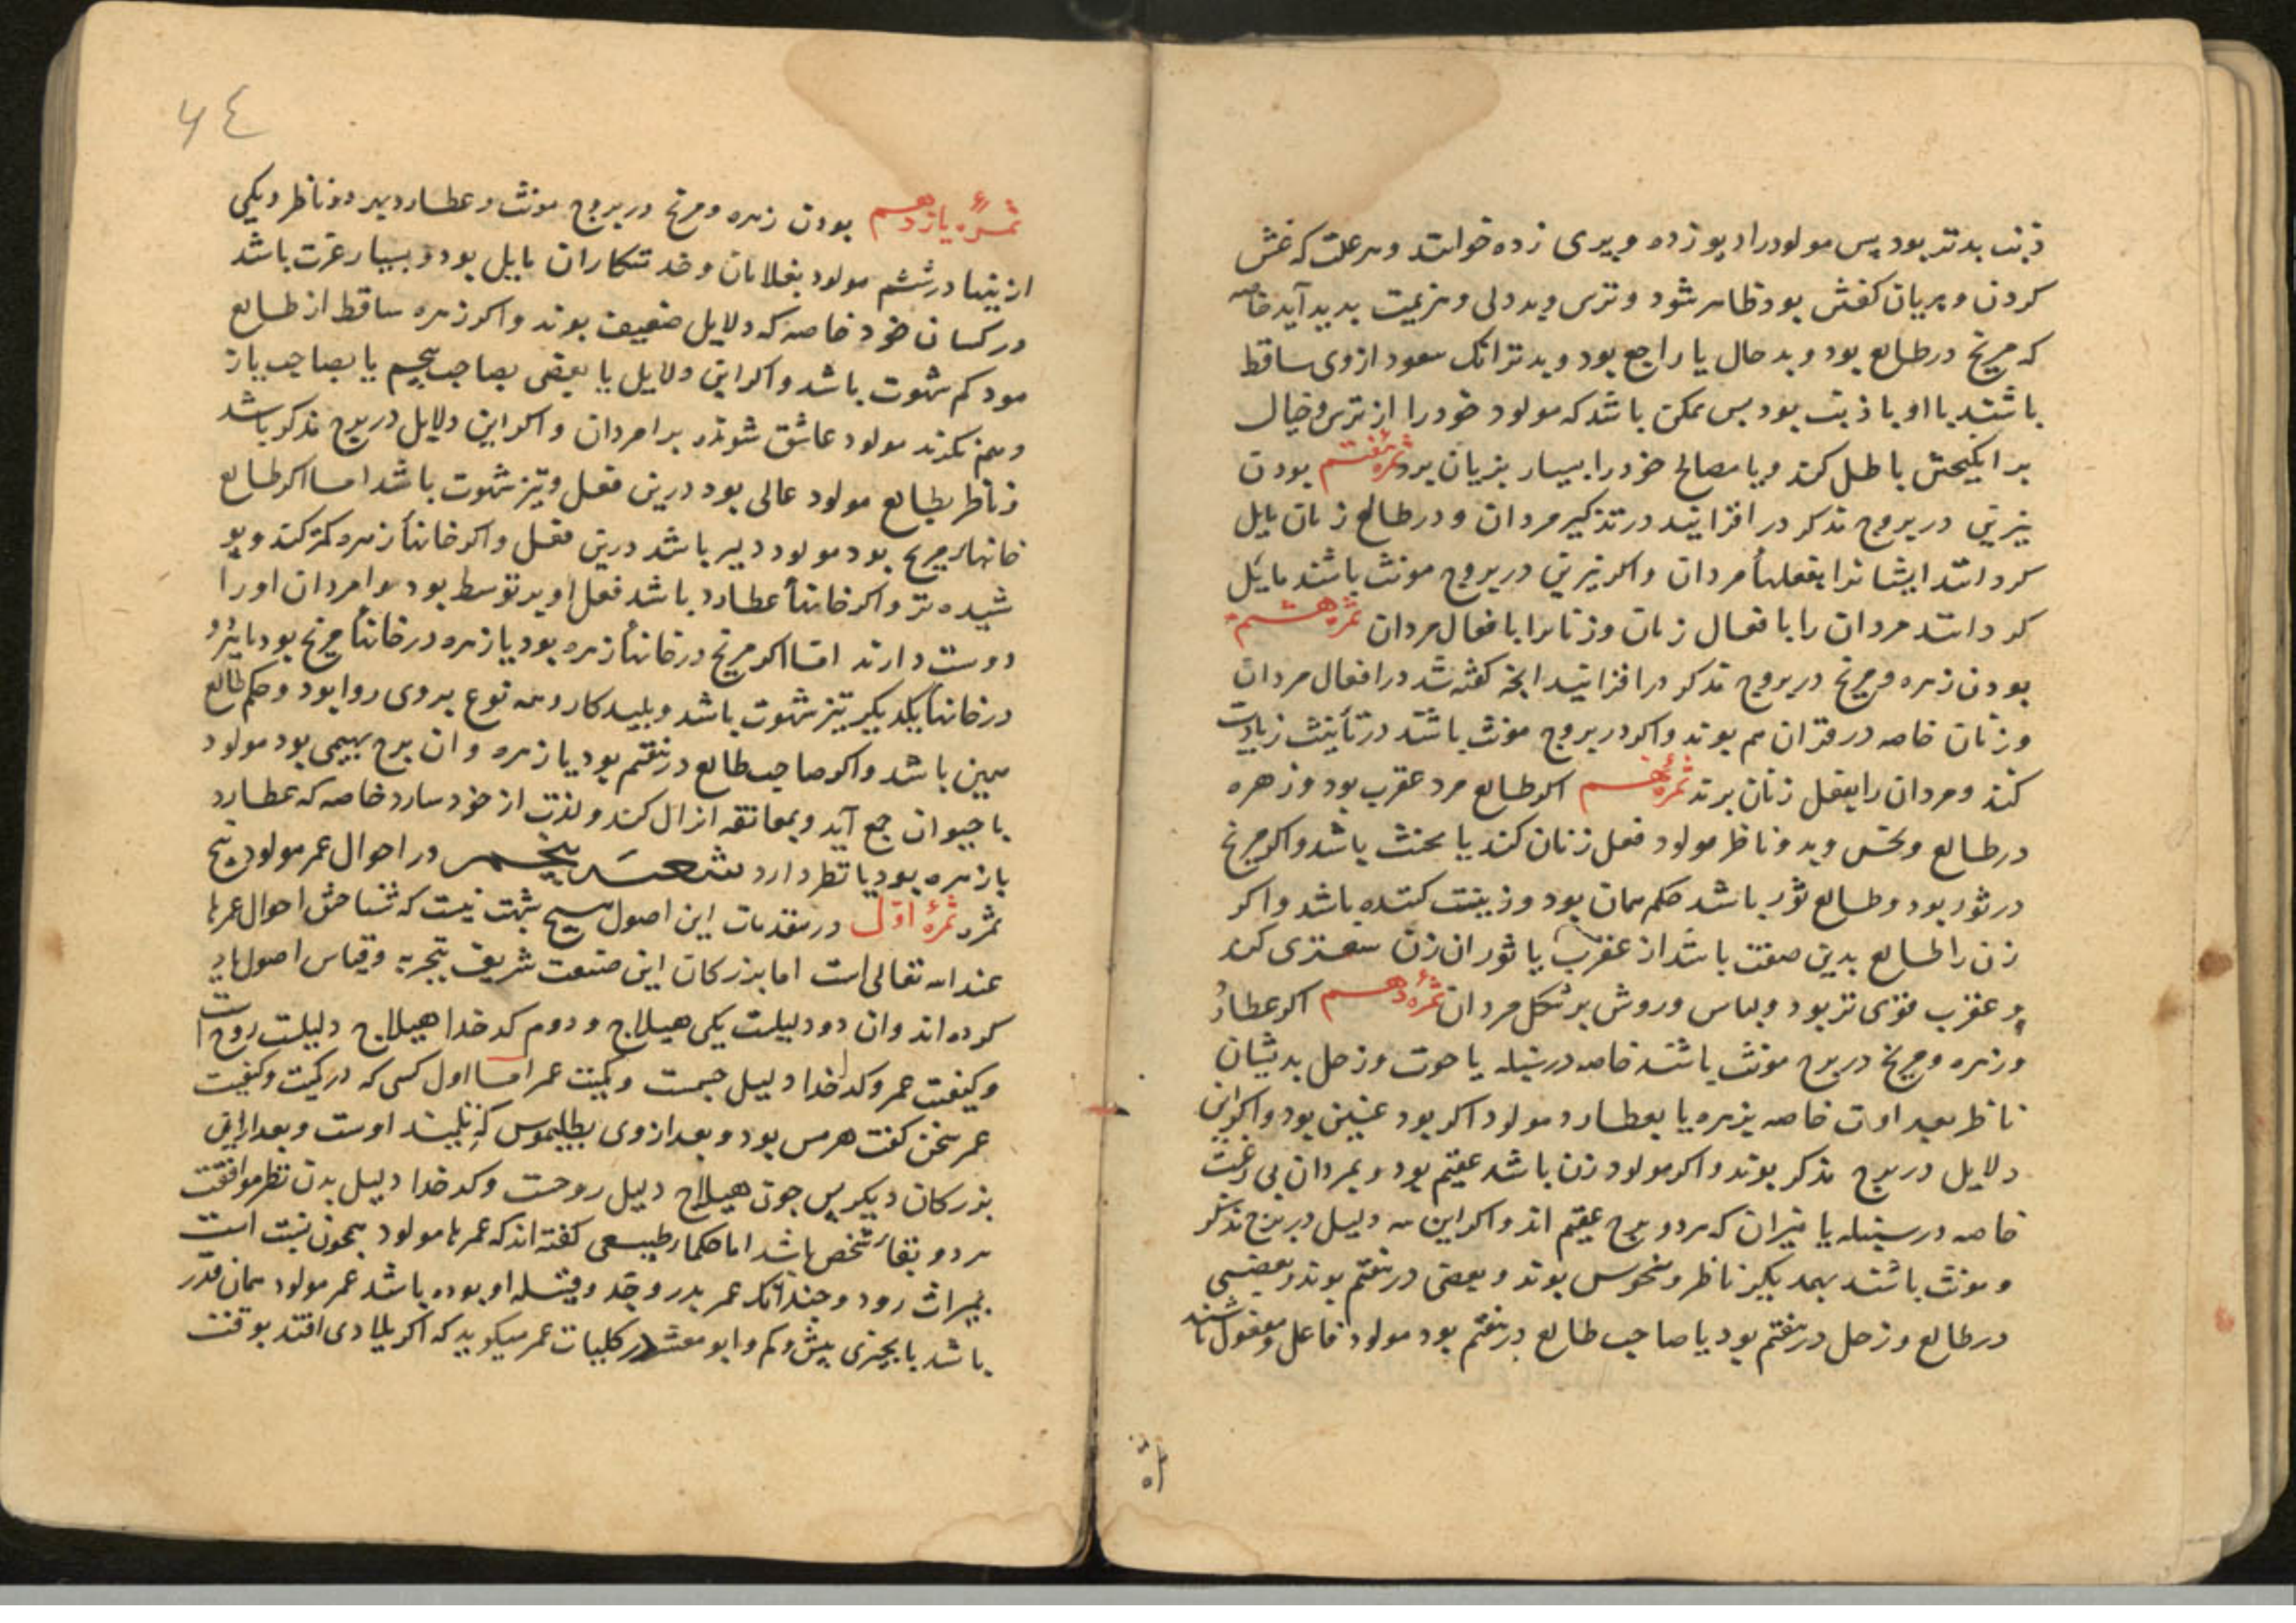 ذنب بدتر بود پس مولود را دیو زده و پری زده خوانند و هر علت که غش
کردن و پریان کفتن بود ظاهر شود و ترس و بددلی و هزیمت بدید آید خاصه
که مریخ در طالع بود و بد حال یا راجع بود و بدتر انک سعود از وی ساقط
باشند با او با ذنب بود بس ممکن باشد که مولود خود را از ترس و خیال
بر باطل کند و یا مصالح خود را بسیار بزیان برد ثمره هفتم بودن
نیرین در بروج مذکر در افزایند در تذکیر مردان و در طالع زنان مایل
کردانند ایشانرا بفعلهاء مردان و اکر نیرین در بروج مونث باشند مایل
کردانند مردان را بافعال زنان و زنانرا بافعال مردان ثمره هشتم
بودن زهره و مریخ در بروج مذکر در افزایند انچه کفته شد در افعال مردان
و زنان خاصه در قران هم بوند و اکر در بروج مونث باشند در تأنیث زیادت
کنند و مردان را بفعل زنان برند ثمره نهم اکر طالع مرد عقرب بود و زهره
در طالع و نحس وبدو ناظر مولود فعل زنان کند یا مخنث باشد و اکر مریخ
در ثور بود و طالع ثور باشد حکم همان بود و زینت کننده باشد و اکر
زن را طالع بدین صفت باشد از عقرب یا ثور ان زن سعتری کند
و عقرب قوی تر بود و لباس و روش بر شکل مردان ثمره دهم اکر عطارد
و زهره و مریخ در برج مونث باشند خاصه در سنبله یا حوت و زحل بدیشان
ناظر بعداوت خاصه بزهره یا بعطارد مولود اکر بود عنین بود و اکر این
دلایل در برج مذکر بوند و اکر مولود زن باشد عقیم بود و بمردان بی رغبت
خاصه در سنبله یا میزان که هر دو برج عقیم اند و اکر این سه دلیل در برج مذکر
و مونث باشند بهمدیکر ناظر و منحوس بوند و بعضی در هفتم بوند و بعضی
در طالع و زحل در هفتم بود یا صاحب طالع در هفتم بود مولود فاعل و مفعول باشند
ثمره یازدهم بودن زهره و مریخ در بروج مونث و عطارد بهر دو ناظر و یکی
از ینها در ششم مولود بغلامان و خدمتکاران مایل بود و بسیار رغبت باشد
در کسان خود خاصه که دلایل ضعیف بوند و اکر زهره ساقط از طالع
مود کم شهوت باشد و اکر این دلایل یا بعضی بصاحب پنجم یا بصاحب یاز
دهم نکرند مولود عاشق شود بر امردان و اکر این دلایل در برج مذکر باشد
و ناظر بطالع مولود عالی بود درین فعل و تیز شهوت باشد اما اکر طالع
خانهاء مریخ بود مولود دلیر باشد درین فعل و اکر خانهاء زهره کمتر کند و پو
شیده تر و اکر خانهاء عطارد باشد فعل او بر توسط بود و امردان او را
دوست دارند اما اکر مریخ در خانهاء زهره بود یا زهره در خانهاء مریخ بود یا هر دو
در خانهاء یکدیکر تیز شهوت باشد و پلید کار و همه نوع بر وی روا بود و حکم طالع
همین باشد و اکر صاحب طالع در هفتم بود یا زهره و ان برج بهیمی بود مولود
با حیوان جمع آید و بمعانقه انزال کند و لذت از خود سازد خاصه که عطارد
با زهره بود یا نظر دارد شعبه پنجم در احوال عمر مولود پنج
ثمره ثمره اول در مقدمات این اصول هیچ شبهت نیست که شناختن احوال عمرها
عند الله تعالی است اما بزرکان این صنعت شریف بتجربه و قیاس اصول یاد
کرده اند و ان دو دلیلست یکی هیلاج و دوم کدخدا هیلاج دلیلست روح را
و کیفیت عمر و کدخدا دلیل جسمست و کمیت عمر اما اول کسی که در کمیت و کیفیت
عمر سخن کفت هرمس بود و بعد از وی بطلیموس که تلمیذ اوست و بعد از این
بزرکان دیکر پس چون هیلاج دلیل روحست و کدخدا دلیل بدن نظر موافقت
هر دو بقاء شخص باشد اما حکماء طبیعی کفته اند که عمرها مولود همچون نسبت است
بمیراث رود و چندانک عمر پدر و جد و قبیله او بوده باشد عمر مولود همان قدر
باشد یا بچیزی بیش و کم و ابو معشر در کلیات عمر میکوید که اکر بلادی افتد بوقت